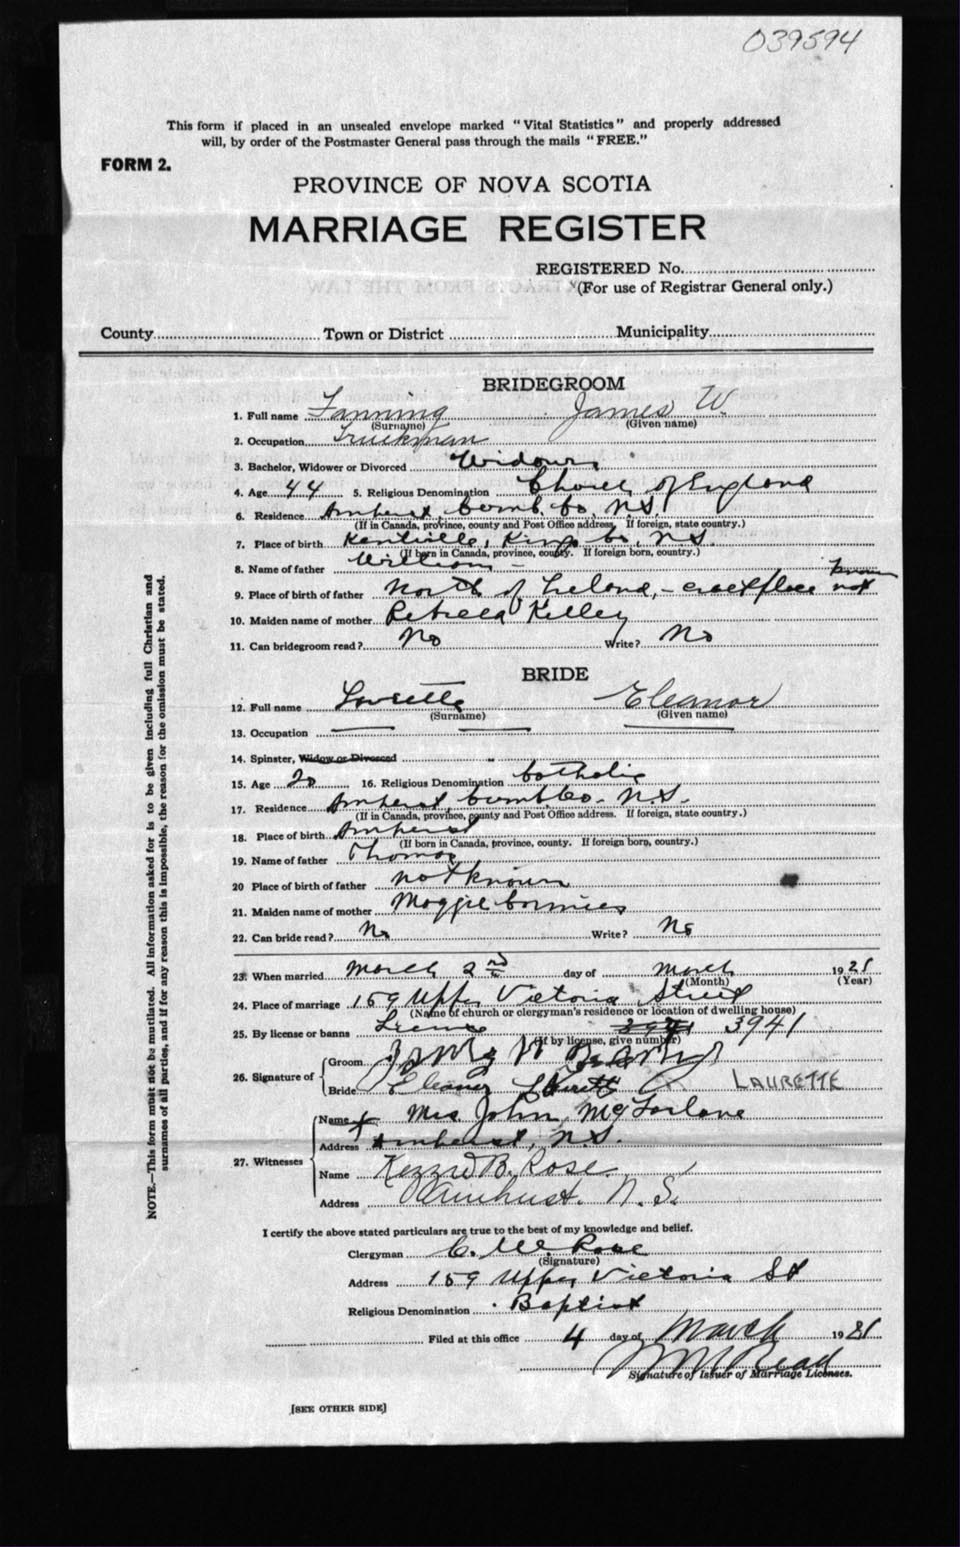 039594
This form if placed in an unsealed envelope marked "Vital Statistics" and properly addressed
will, by order of the Postmaster General pass through the mails "FREE."
FORM 2.
PROVINCE OF NOVA SCOTIA
MARRIAGE REGISTER
REGISTERED No.
(For use of Registrar General only.)
County Town or District Municipality
BRIDEGROOM
1. Full name Fanning James W.
(Surname) (Given name)
2. Occupation Truckman
3. Bachelor, Widower or Divorced Widower
4. Age 44 5. Religious Denomination Church of England
6. Residence Amherst, Cumb. Co., N.S.
(If in Canada, province, county and Post Office address. If foreign, state country.)
7. Place of birth Kentville, Kings Co. N.S.
(If born in Canada, province, county. If foreign born, country.)
8. Name of father William
9. Place of birth of father North of Ireland, - exact place not known
10. Maiden name of mother Rebecca Kelley
11. Can bridegroom read? No Write? No
BRIDE
12. Full name Eleanor
(Surname) (Given name)
13. Occupation
14. Spinster, Widow or Divorced "
15. Age 20 16. Religious Denomination Catholic
17. Residence Amherst, Cumb. Co. N.S.
(If in Canada, province, county and Post Office address. If foreign, state country.)
18. Place of birth Amherst
(If born in Canada, province, county. If foreign born, country.)
19. Name of father Thomas
20 Place of birth of father not known
21. Maiden name of mother Maggie
22. Can bride read? No Write? No
23. When married March 2nd day of March 1921
(Month) (Year)
24. Place of marriage 159 Upper Victoria Street
(Name of church or clergyman's residence or location of dwelling house)
25. By license or banns License 3941
(If by license, give number)
26. Signature of
Groom James W
Bride Eleanor LAURETTE
27. Witnesses
Name Mrs John McFarlane
Address Amherst, N.S.
Name B. Rose
Address Amherst. N.S.
I certify the above stated particulars are true to the best of my knowledge and belief.
Clergyman C. W. Rose
(Signature)
Address 159 Upper Victoria St
Religious Denomination Baptist
Filed at this office 4 day of March 1921
Read
Signature of Issuer of Marriage Licenses.
[SEE OTHER SIDE]
NOTE.—This form must not be mutilated. All information asked for is to be given including full Christian and
surnames of all parties, and if for any reason this is impossible, the reason for the omission must be stated.